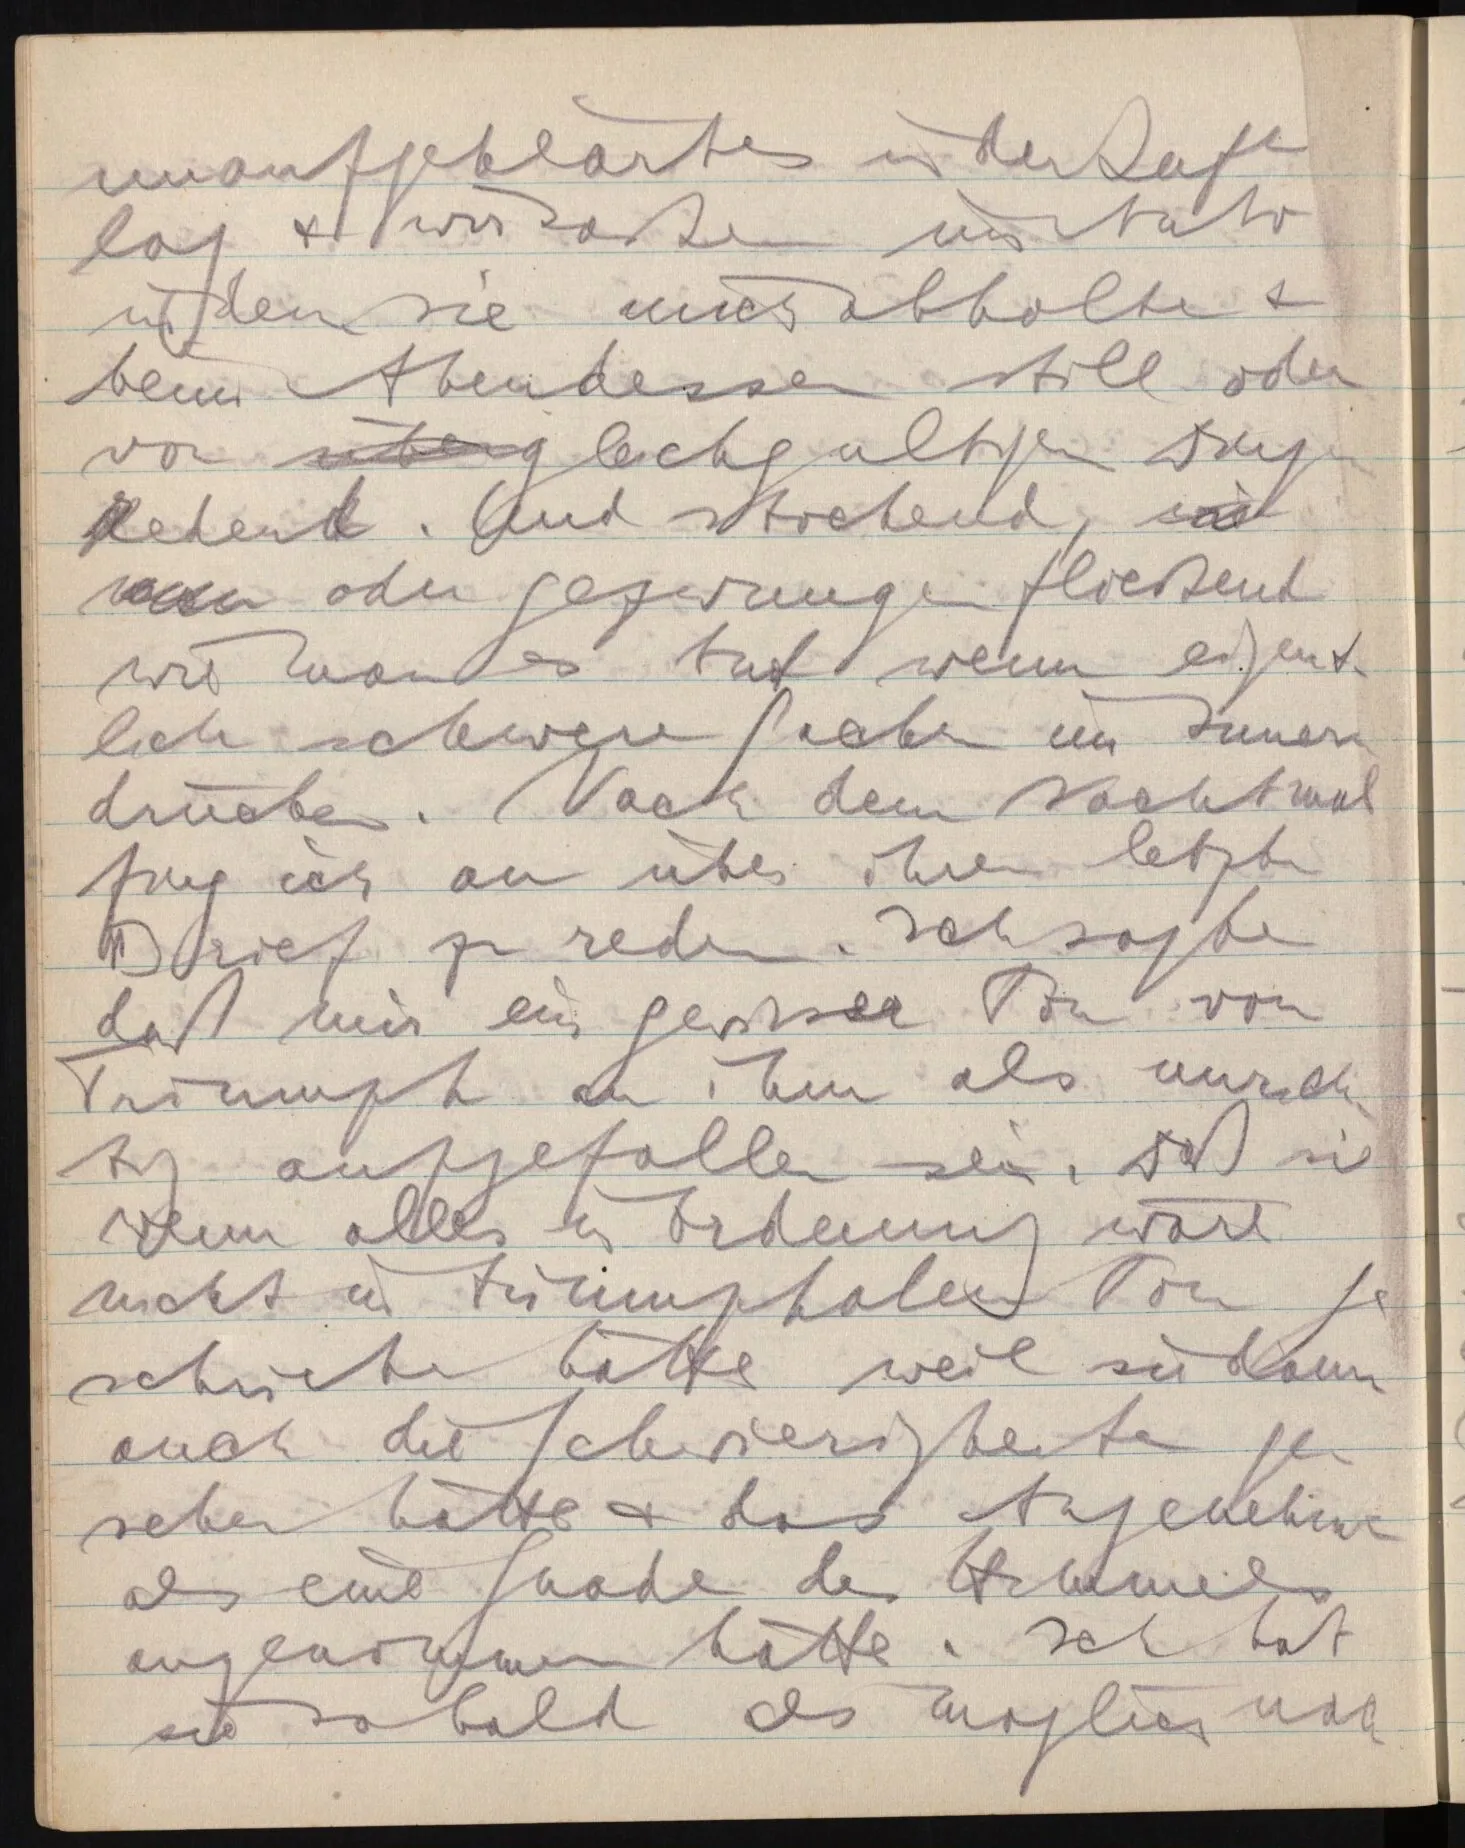 unaufgeklärtes in der Luft
lag & wir saßen im Auto
in dem sie mich abholte &
beim Abendessen still oder
von gleichgultigen Dingen
redend. Und stockend,
oder gezwungen fließend
wie man es tut wenn eigent-
lich schwere Sachen im Innern
drücken. Nach dem Nachtmal
fing ich an über ihren letzten
Brief zu reden. Ich sagte
daß mir ein gewisser Ton von
Triumph an ihm als unrich-
tig aufgefallen sei. Daß sie
wenn alles in Ordnung wäre
nicht in triumphalem Ton ge
schrieben hätte weil sie dann
auch die Schwierigkeiten ge
sehen hätte & das Angenehme
als eine Gnade des Himmels
angenommen hätte. Ich bat
sie sobald als möglich nach